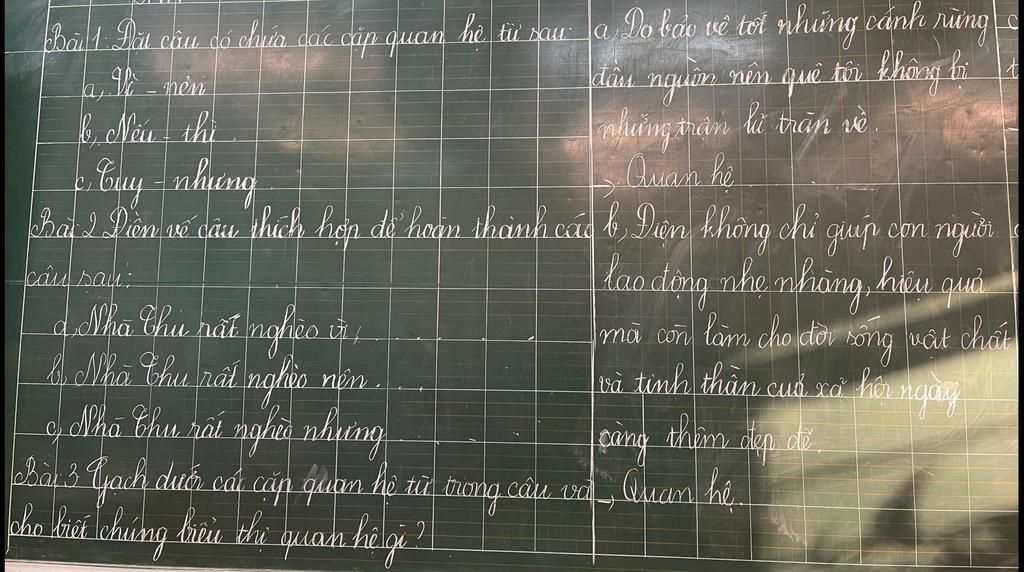 Bài 1: Đặt câu có chứa các cặp quan hệ từ sau:
a, Vì - nên
b, Nếu - thì
c, Tuy - nhưng
Bài 2 Điền vế câu thích hợp để hoàn thành các
câu sau:
a, Nhà Thu rất nghèo vì, . . . . .
b, Nhà Thu rất nghèo nên . . . .
c, Nhà Thu rất nghèo nhưng . . . . .
Bài 3 Gạch dưới các cặp quan hệ từ trong câu và
cho biết chúng biểu thị quan hệ gì?
a, Do bảo vệ tốt những cánh rừng
đầu nguồn nên quê tôi không bị
những trận lũ tràn về.
→ Quan hệ . . . . . . .
b, Điện không chỉ giúp con người
lao động nhẹ nhàng, hiệu quả
mà còn làm cho đời sống vật chất
và tinh thần của xã hội ngày
càng thêm đẹp đẽ.
→ Quan hệ.